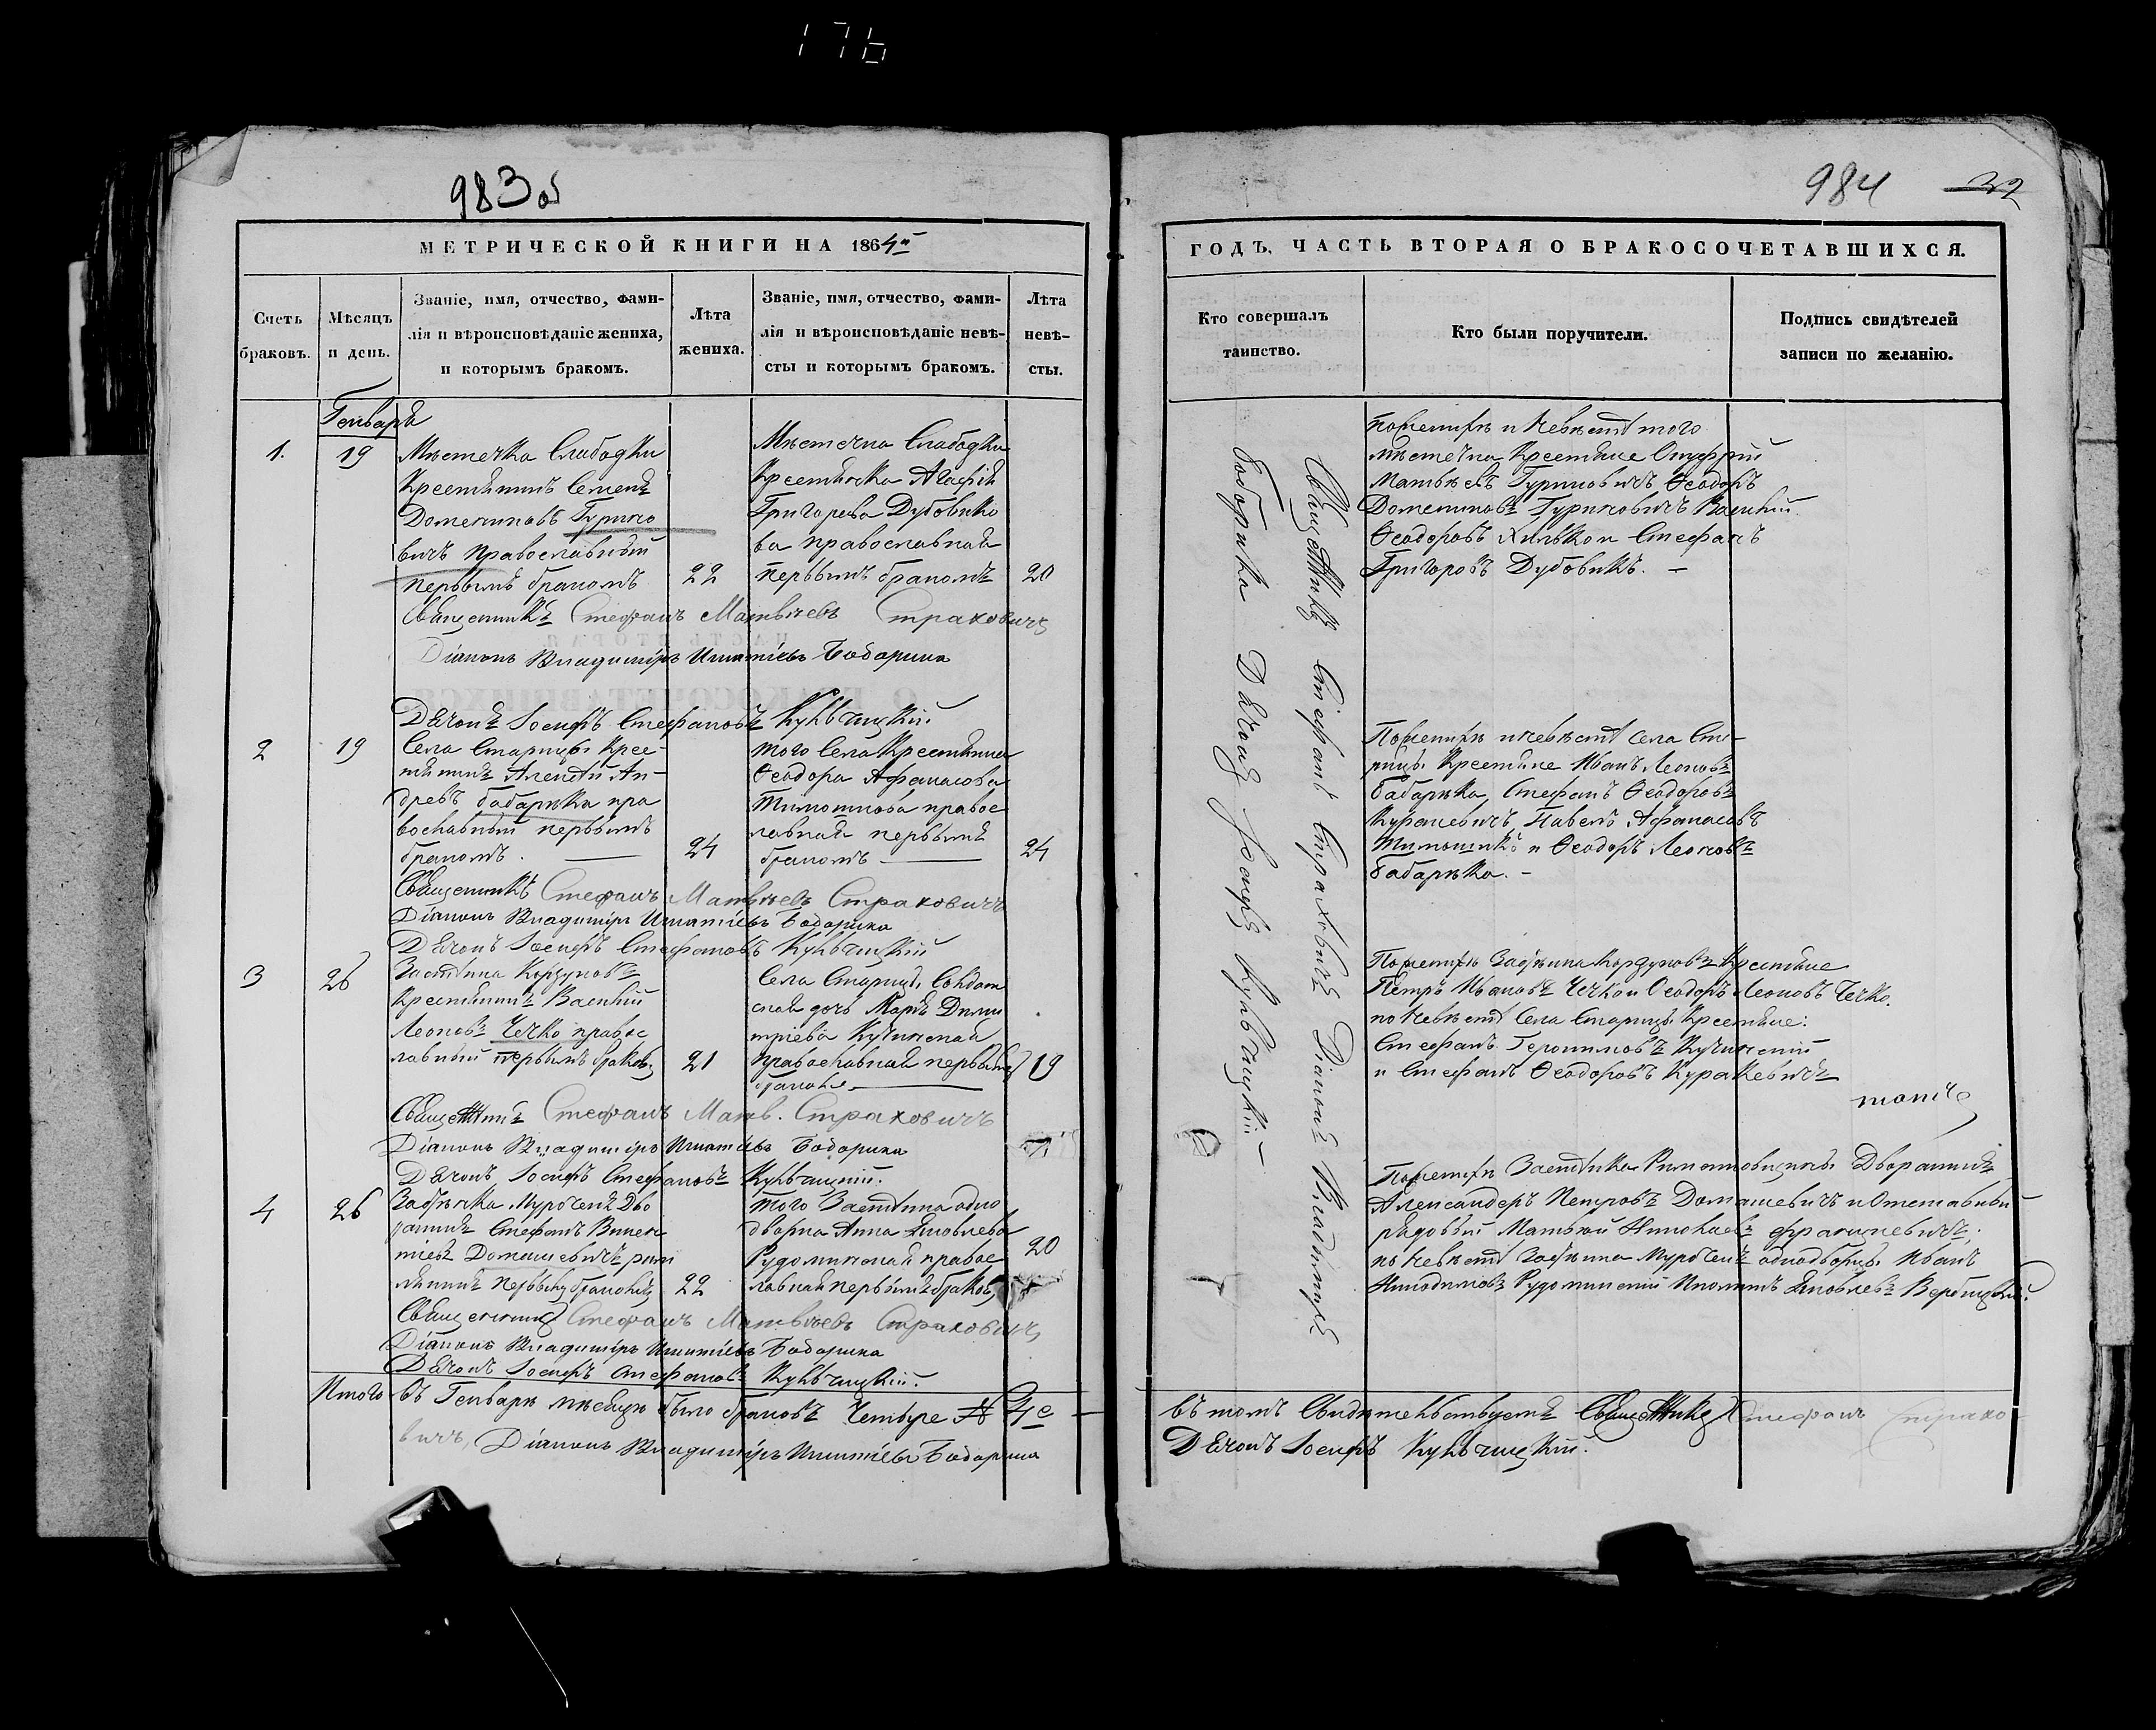 176
983 об
МЕТРИЧЕСКОЙ КНИГИ НА 1864й
Счетъ браковъ.
Мѣсяцъ и день.
Званіе, имя, отчество, фами-
лія и вѣроисповѣданіе жениха,
и которымъ бракомъ.
Лѣта
жениха.
Званіе, имя, отчество, фами-
лія и вѣроисповѣданіе невѣ-
сты и которымъ бракомъ.
Лѣта
невѣ-
сты.
Генваря
1.
19
Мѣстечка Слабодки
Крестянинъ Семенъ
Домениковъ Гурино
вичъ православный
первымъ бракомъ
22
Мѣстечка Слабодки
Крестянка Агафія
Григорева Дубовико
ва православная
первымъ бракомъ
20
Священникъ Стефанъ Матвѣевъ Страховичъ
Діаконъ Владиміръ Игнатіевъ Бодорика
Дячокъ Іосифъ Стефановъ Кульчицкій
2
19
Села Старицы Крес-
тянинъ Алексѣй Ан-
древъ бабарыка пра
вославный первымъ
бракомъ.
24
того Села Крестянка
Ѳеодора Афанасова
Тимошкова правос
лавная первымъ
бракомъ
24
Священникъ Стефанъ Матвѣевъ Страховичъ
Діаконъ Владиміръ Игнатіевъ Бодорика
Дячокъ Іосифъ Стефановъ Кульчицкій
3
26
Застѣнка Корзуновъ
Крестянинъ Василій
Леоновъ Чечко правос
лавный первымъ браком
21
Села Старицы Солдат
ская дочь Марія Дими
тріева Кучинская
православная первымъ
браком
19
Священникъ Стефанъ Матв. Страховичъ
Діаконъ Владиміръ Игнатіевъ Бодорика
Дячокъ Іосифъ Стефановъ Кульчицкій.
4
26
Стефанъ Викен
тіевъ Домашевичъ рим
лянинъ первымъ бракомъ
22
того Застѣнка одно
дворка Анна Яковлева
Рудоминская правос
лавная первымъ браком
20
Священникъ Стефанъ Матвѣевъ Страховичъ
Діаконъ Владиміръ Игнатіевъ Бодорика
Дячокъ Іосифъ Стефановъ Кульчицкій.
Итого въ Генварѣ мѣсяцѣ было браковъ Четыре № 4е
вичъ, Діаконъ Владиміръ Игнатіевъ Бодорика
984 32
ГОДЪ, ЧАСТЬ ВТОРАЯ О БРАКОСОЧЕТАВШИХСЯ.
Кто совершалъ
таинство.
Кто были поручители.
Подпись свидѣтелей
записи по желанію.
Священникъ Стефанъ Страховичъ Діаконъ Владиміръ
Бодорика Дячокъ Іосифъ Кульчицкій
Поженихѣ и Невѣстѣ того
мѣстечка Крестяне Онуфрій
Матвѣевъ Гуриновичъ Ѳеодоръ
Доминиковъ Гуриновичъ Василий
Ѳеодоровъ Хилько и Стефанъ
Григоровъ Дубовикъ.
Поженихѣ и невѣстѣ Села Ста-
рицы Крестяне Иванъ Леоновъ
бабарыка, Стефанъ Ѳеодоровъ
Куракевичъ Павелъ Афанасовъ
Тимошикъ и Ѳеодоръ Леоновъ
бабарыка.
Поженихѣ Застѣнка Корзуновъ Крестяне
Петръ Ивановъ Чечко и Ѳеодоръ Леоновъ Чечко.
по Невѣстѣ Села Старицы Крестяне:
Стефанъ Геронимовъ Кучинскій
и Стефанъ Ѳеодоровъ Куракевичъ
Поженихѣ Застѣнка Дворянинъ
Александеръ Петровъ Домашевичъ и Отставный
рядовый Матвей Николаевъ
по Невѣстѣ Застѣнка однодворцы Иванъ
Никодимовъ Рудоминскій Яковлевъ Вербицкій.
въ томъ Свидѣтельствуетъ Священникъ Стефанъ Страхо-
Дячокъ Іосифъ Кульчицкій.